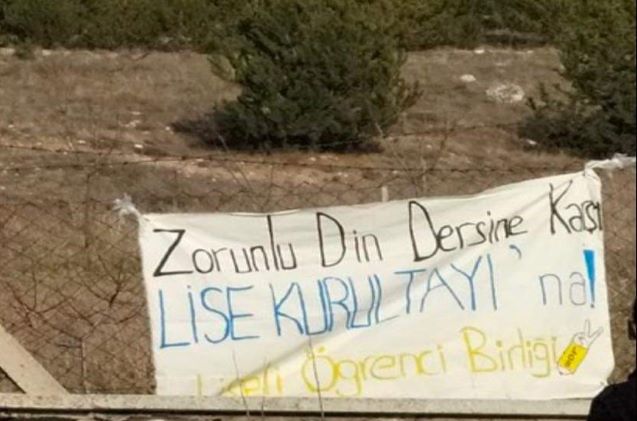 Zorunlu Din Dersine Karşı
LİSE KURULTAYI'na!
Liseli Öğrenci Birliği